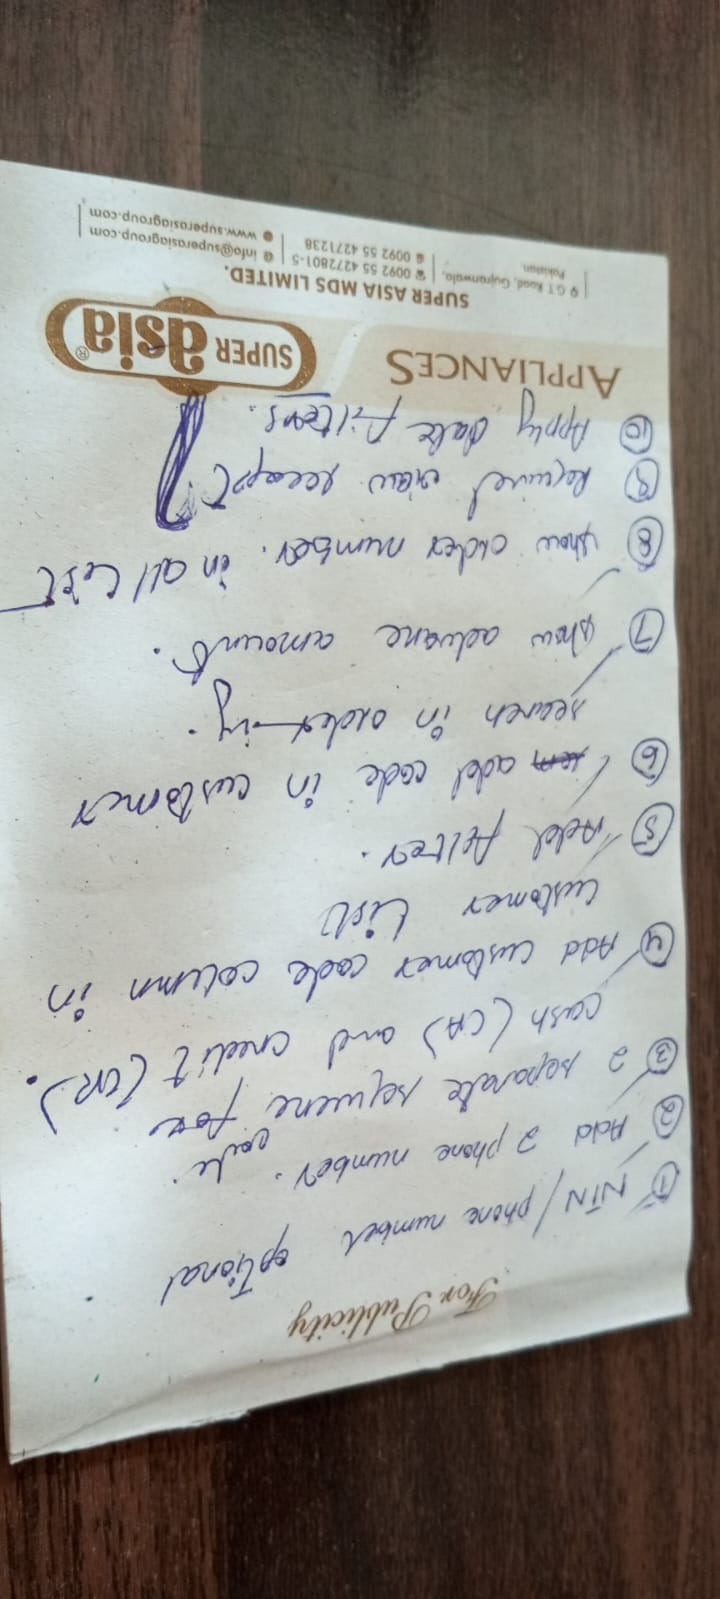 For Publicity
① NTN/phone number optional
② Add 2 phone number.
③ 2 separate sequence for code
cash (CA) and credit (CR).
④ Add customer code column in
customer List
⑤ Add filter.
⑥ add code in customer
search in
⑦ show advance amount.
⑧ show order number. in all List
⑨ view
⑩ Apply date filters.
APPLIANCES
SUPER asia®
SUPER ASIA MDS LIMITED.
G.T. Road, Gujranwala, 0092 55 4272801-5 info@superasiagroup.com
Pakistan. 0092 55 4271238 www.superasiagroup.com